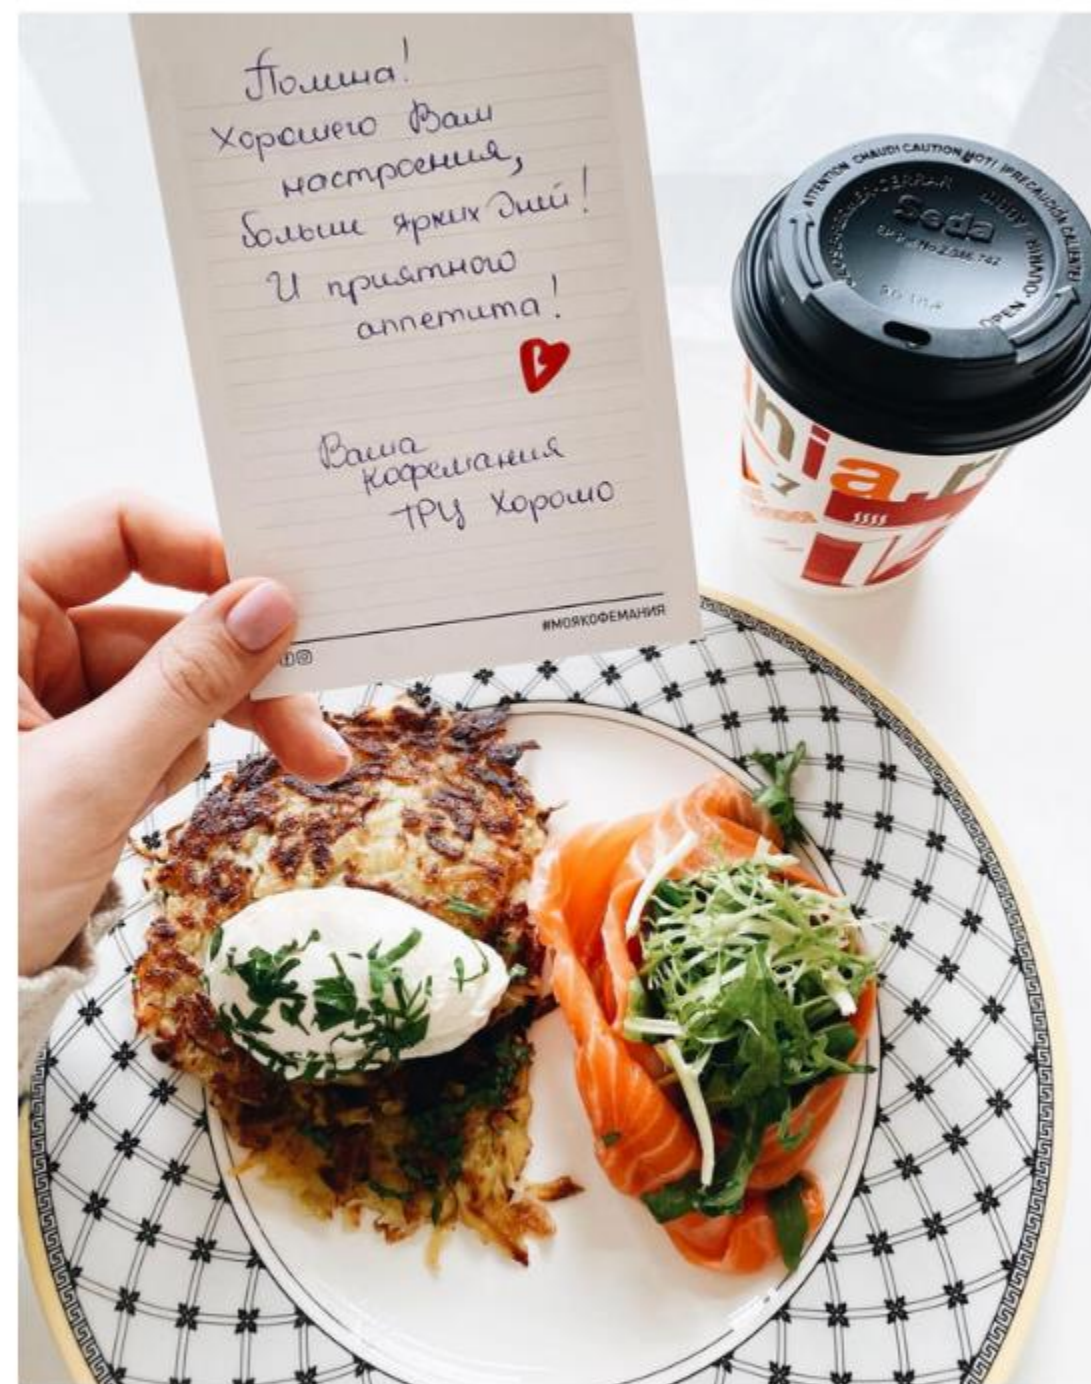 Полина!
Хорошего Вам
настроения,
больше ярких дней!
И приятного
аппетита!
Ваша
Кофемания
ТРЦ Хорошо
#МОЯКОФЕМАНИЯ
ATTENTION CHAUD! CAUTION HOT! ¡PRECAUCIÓN CALIENTE!
Seda
OPEN
nia.r